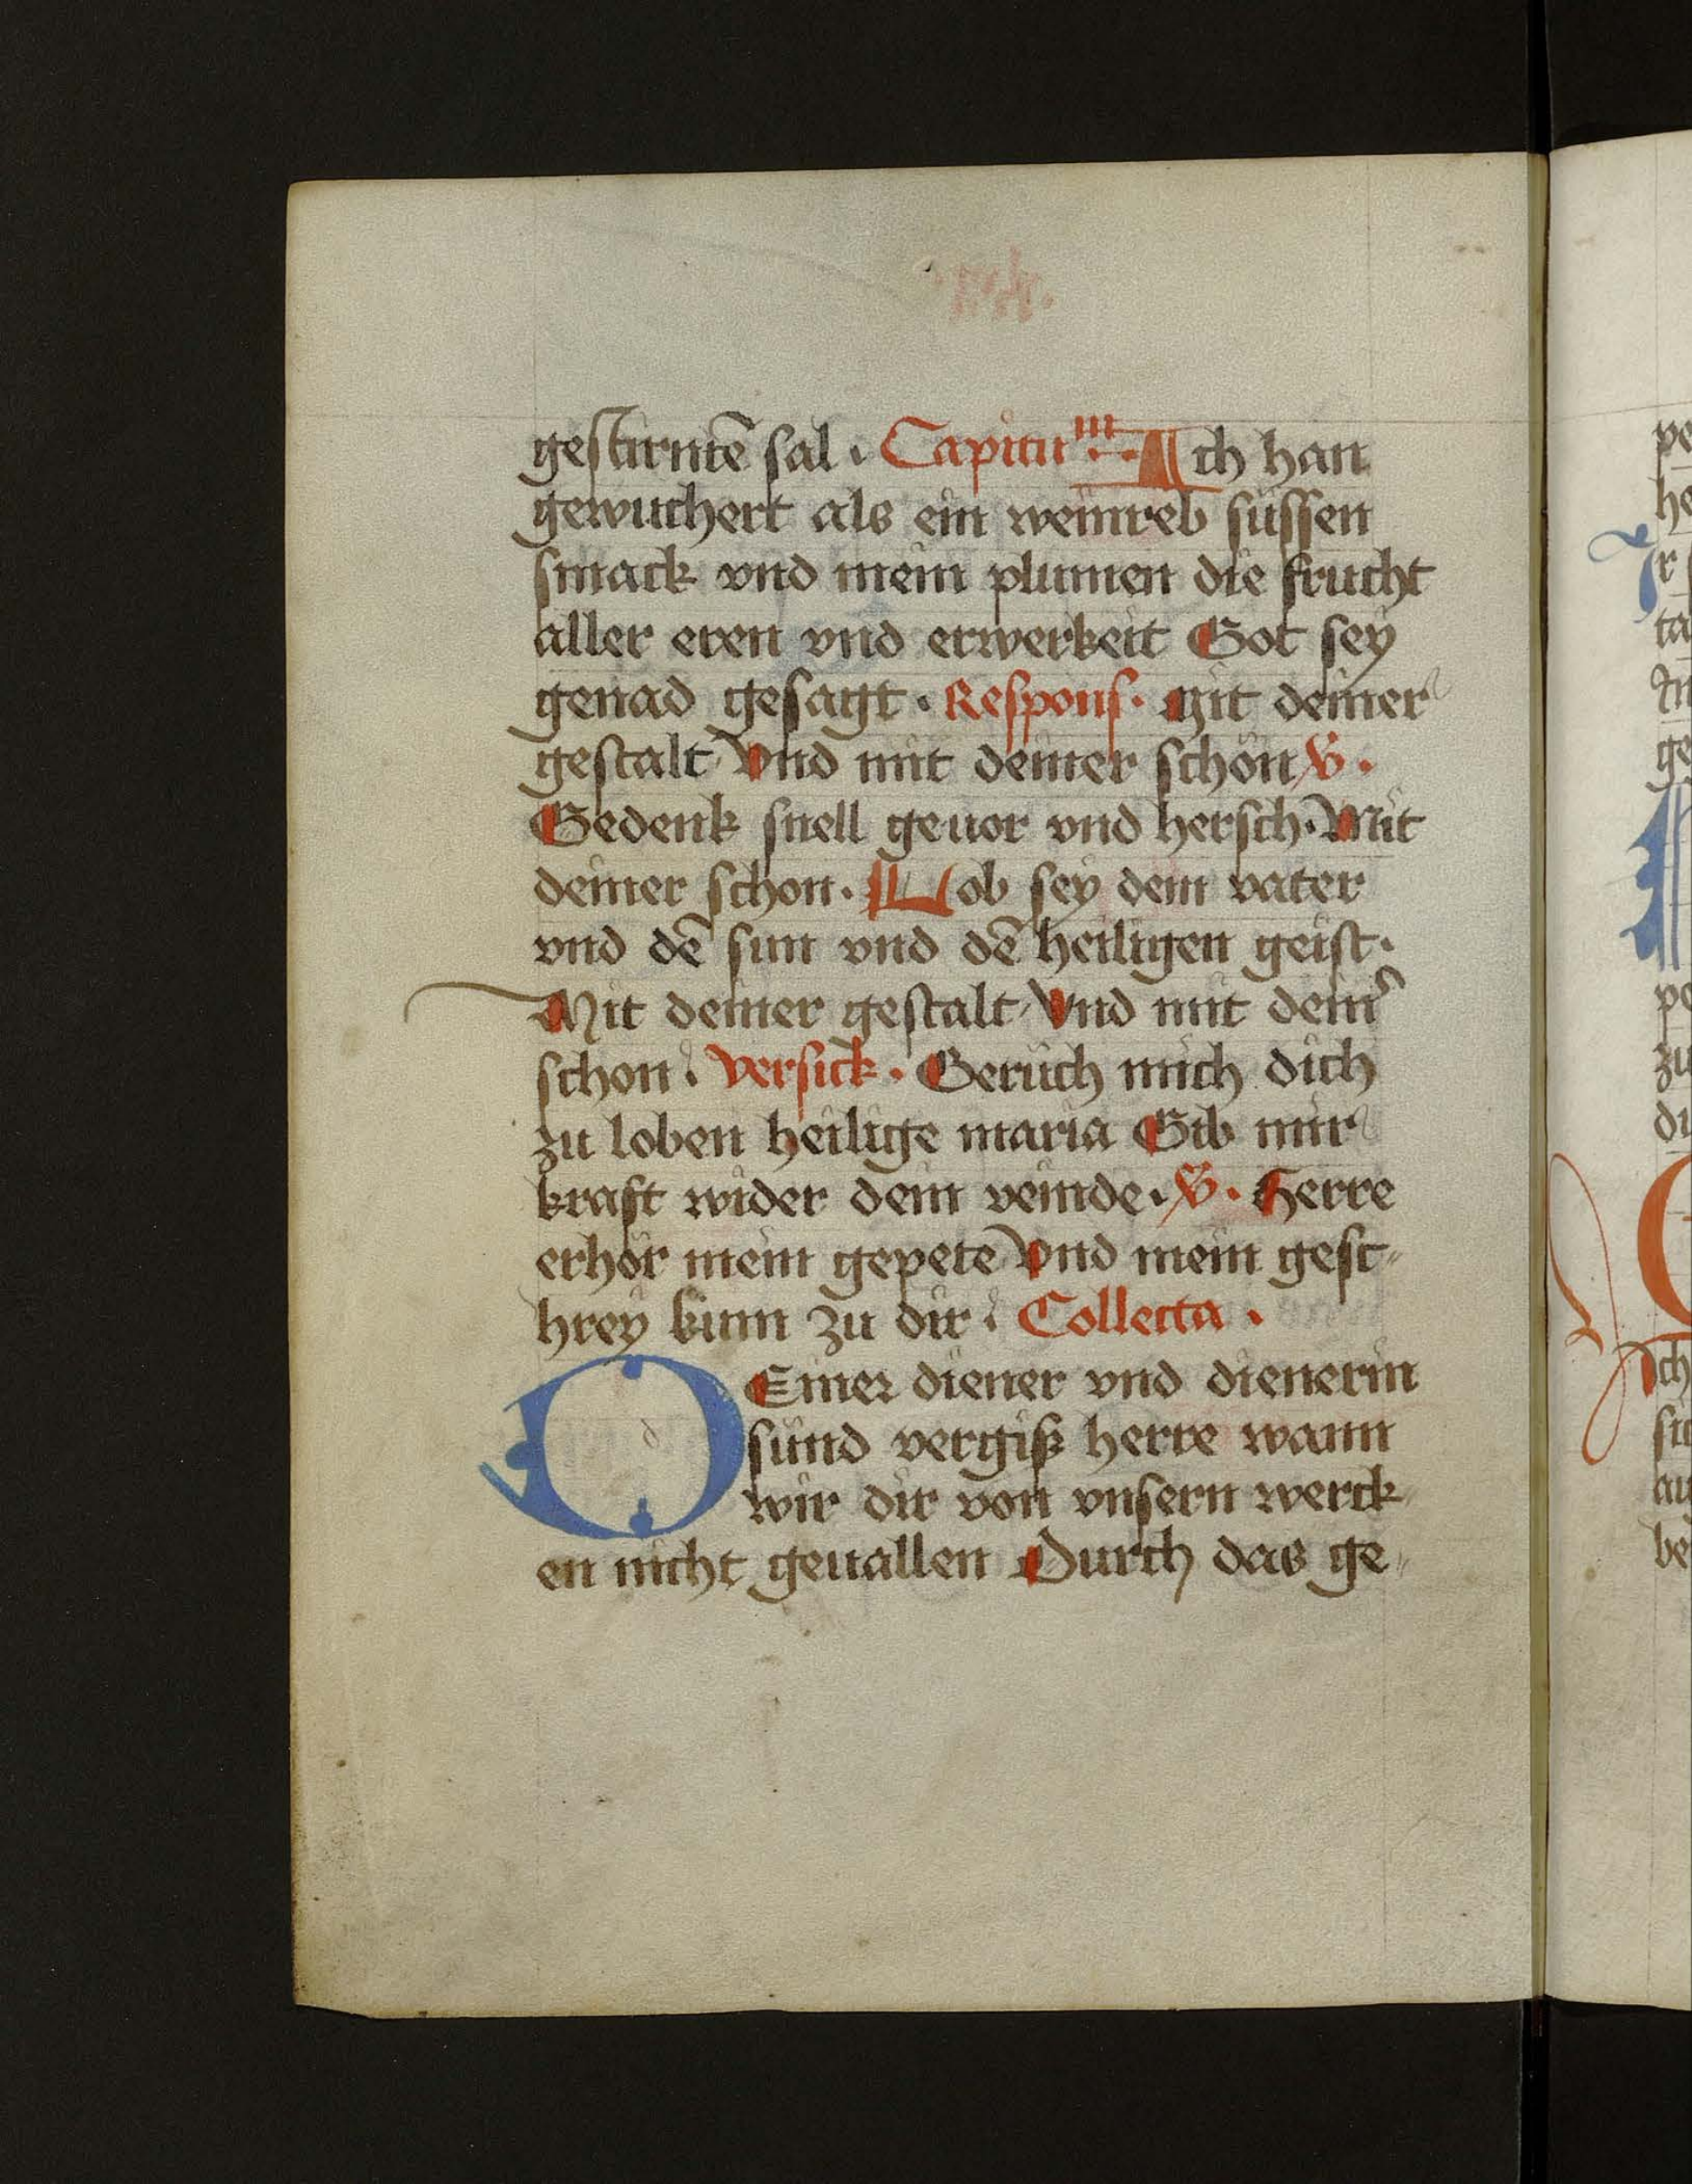 gestirntē sal · Capitu · Ich han
gewuchert als ein weinreb süssen
smack vnd mein plumen die frucht
aller eren vnd erwerkeit Got sey
genad gesagt · Respons · Mit deiner
gestalt Vnd mit deiner schön V ·
Gedenk snell geuor vnd hersch · Mit
deiner schon · Lob sey dem vater
vnd dē sun vnd dē heiligen geist ·
Mit deiner gestalt Vnd mit dein̛
schon · Versick · Geruch mich dich
zu loben heilige maria Gib mir
kraft wider dein veinde · V · Herre
erhör mein gepete Vnd mein gesc-
hrey kum zu dir · Collecta ·
DEiner diener vnd dienerin
sünd vergiß herre wann
wir dir von vnsern werck-
en nicht geuallen Durch das ge-